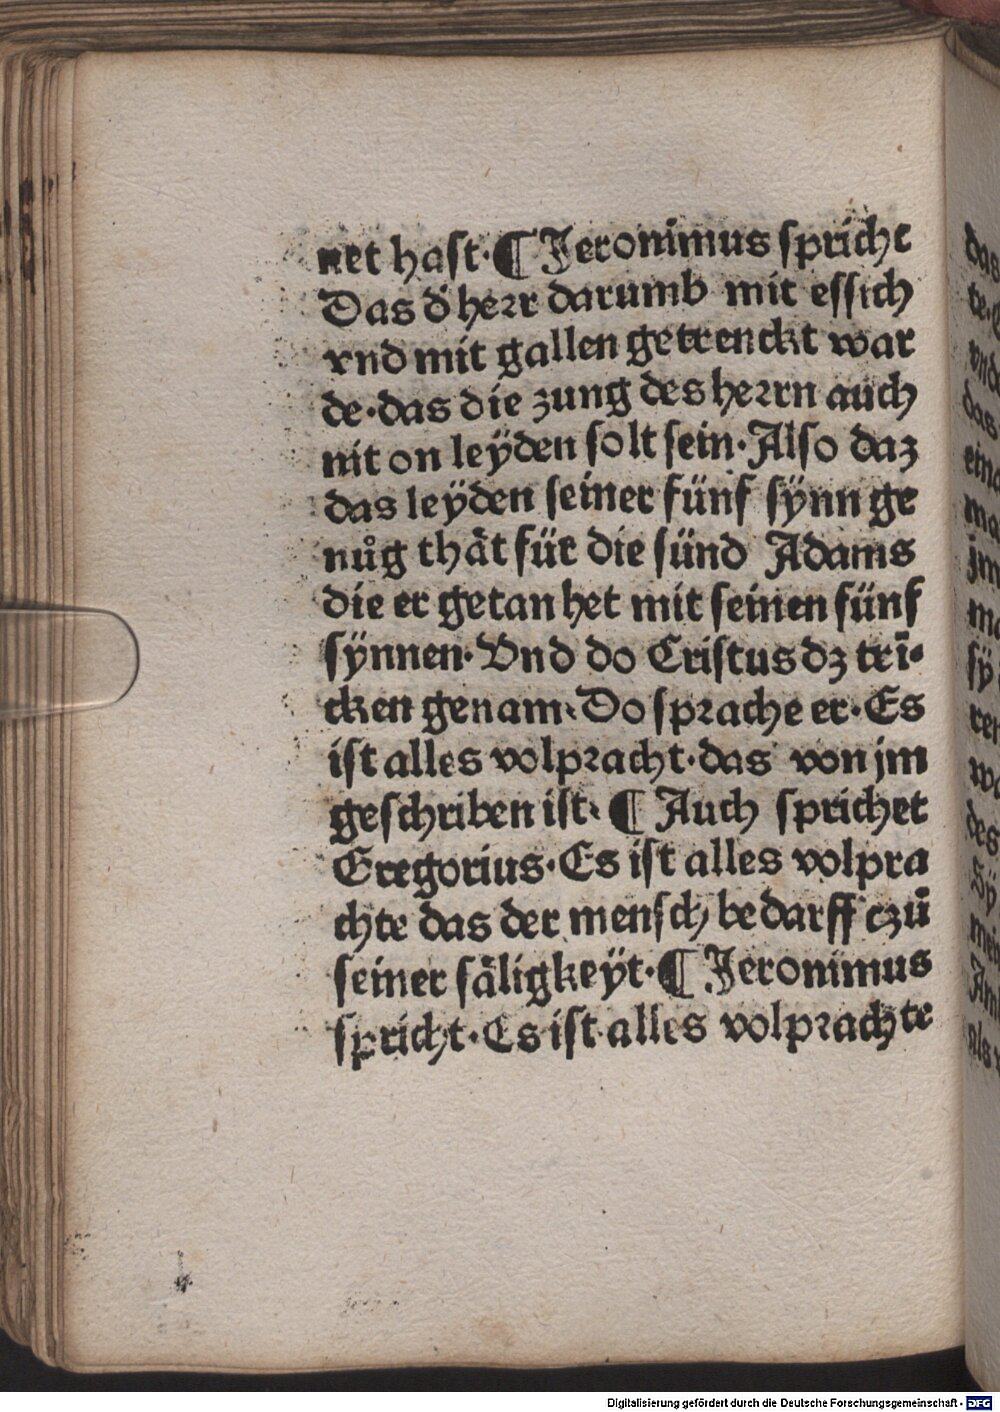 net hast·¶Jeronimus spricht
Das d̕ herr darumb mit essich
vnd mit gallen getrenckt war
de·das die zung des herrn auch
nit on leÿden solt sein·Also daz
das leÿden seiner fünf sÿnn ge
nůg thät für die sünd Adams
die er getan het mit seinen fünf
sÿnnen·Vnd do Cristus dz trī·
cken genam·Do sprache er·Es
ist alles volpracht·das von jm
geschriben ist·¶ Auch sprichet
Gregorius·Es ist alles volpra
chte das der mensch bedarff czů
seiner säligkeÿt·¶ Jeronimus
spricht·Es ist alles volprachte
Digitalisierung gefördert durch die Deutsche Forschungsgemeinschaft - DFG